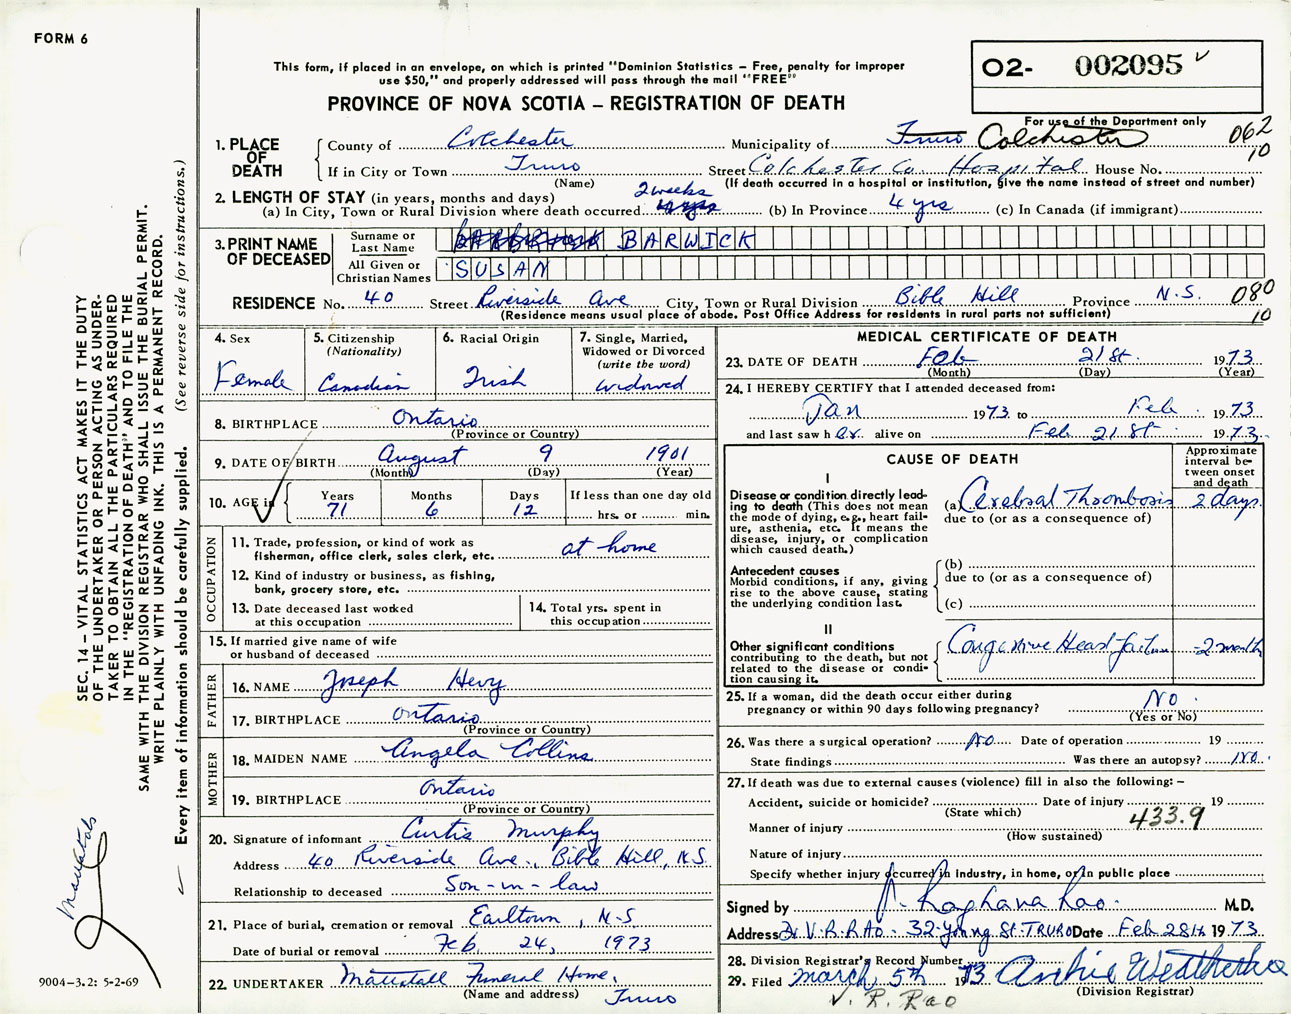 FORM 6
This form, if placed in an envelope, on which is printed "Dominion Statistics – Free, penalty for improper
use $50," and properly addressed will pass through the mail "FREE"
PROVINCE OF NOVA SCOTIA – REGISTRATION OF DEATH
O2- 002095
For use of the Department only
062
10
1. PLACE OF DEATH
County of Colchester Municipality of Truro Colchester
If in City or Town Truro Street Colchester Co. Hospital House No.
(Name) (If death occurred in a hospital or institution, give the name instead of street and number)
2. LENGTH OF STAY (in years, months and days) 2 weeks
(a) In City, Town or Rural Division where death occurred 4 yrs (b) In Province 4 yrs (c) In Canada (if immigrant)
3. PRINT NAME OF DECEASED
Surname or Last Name BARWICK
All Given or Christian Names SUSAN
RESIDENCE No. 40 Street Riverside Ave City, Town or Rural Division Bible Hill Province N.S. 080
(Residence means usual place of abode. Post Office Address for residents in rural parts not sufficient) 10
4. Sex Female
5. Citizenship (Nationality) Canadian
6. Racial Origin Irish
7. Single, Married, Widowed or Divorced (write the word) widowed
8. BIRTHPLACE Ontario
(Province or Country)
9. DATE OF BIRTH August 9 1901
(Month) (Day) (Year)
10. AGE in Years 71 Months 6 Days 12 If less than one day old hrs. or min.
OCCUPATION
11. Trade, profession, or kind of work as fisherman, office clerk, sales clerk, etc. at home
12. Kind of industry or business, as fishing, bank, grocery store, etc.
13. Date deceased last worked at this occupation
14. Total yrs. spent in this occupation
15. If married give name of wife or husband of deceased
FATHER
16. NAME Joseph Hevy
17. BIRTHPLACE Ontario
(Province or Country)
MOTHER
18. MAIDEN NAME Angela Collins
19. BIRTHPLACE Ontario
(Province or Country)
20. Signature of informant Curtis Murphy
Address 40 Riverside Ave., Bible Hill, N.S.
Relationship to deceased Son-in-law
21. Place of burial, cremation or removal Earltown, N-S
Date of burial or removal Feb. 24, 1973
22. UNDERTAKER Mattatall Funeral Home,
(Name and address) Truro
MEDICAL CERTIFICATE OF DEATH
23. DATE OF DEATH Feb 21st 1973
(Month) (Day) (Year)
24. I HEREBY CERTIFY that I attended deceased from:
Jan 1973 to Feb 1973
and last saw her alive on Feb 21st 1973
CAUSE OF DEATH
Approximate interval between onset and death
I
Disease or condition directly leading to death (This does not mean the mode of dying, e.g., heart failure, asthenia, etc. It means the disease, injury, or complication which caused death.)
(a) Cerebral Thrombosis 2 days
due to (or as a consequence of)
Antecedent causes
Morbid conditions, if any, giving rise to the above cause, stating the underlying condition last.
(b)
due to (or as a consequence of)
(c)
II
Other significant conditions contributing to the death, but not related to the disease or condition causing it.
Congestive Heart failure 2 month
25. If a woman, did the death occur either during pregnancy or within 90 days following pregnancy? No.
(Yes or No)
26. Was there a surgical operation? No Date of operation 19
State findings Was there an autopsy? No.
27. If death was due to external causes (violence) fill in also the following: –
Accident, suicide or homicide? Date of injury 19
(State which)
Manner of injury 433.9
(How sustained)
Nature of injury
Specify whether injury occurred in industry, in home, or in public place
Signed by Raghava Rao. M.D.
Address Dr V.R. RAO - 32 Young St. TRURO Date Feb 28th 1973
28. Division Registrar's Record Number
29. Filed March 5th 1973 Archie Weatherbee
(Division Registrar)
V. R. Rao
SEC. 14 – VITAL STATISTICS ACT MAKES IT THE DUTY
OF THE UNDERTAKER OR PERSON ACTING AS UNDER-
TAKER TO OBTAIN ALL THE PARTICULARS REQUIRED
IN THE "REGISTRATION OF DEATH" AND TO FILE THE
SAME WITH THE DIVISION REGISTRAR WHO SHALL ISSUE THE BURIAL PERMIT.
WRITE PLAINLY WITH UNFADING INK. THIS IS A PERMANENT RECORD.
Every item of information should be carefully supplied. (See reverse side for instructions.)
9004-3.2: 5-2-69